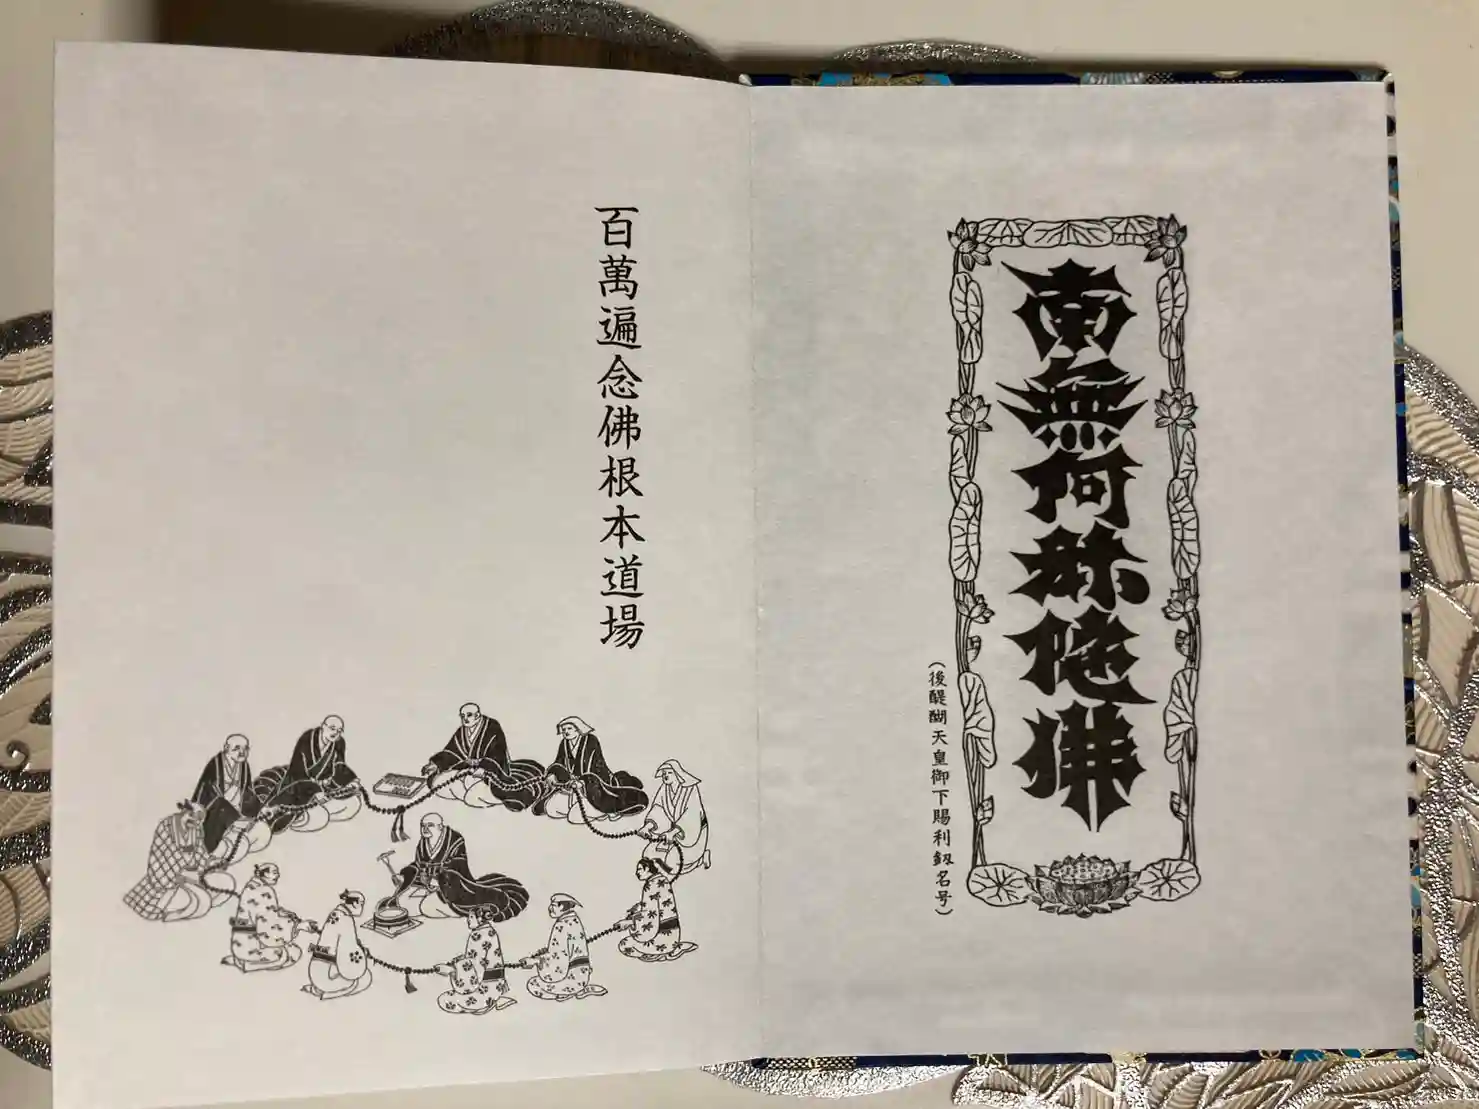 南無阿弥陀佛
（後醍醐天皇御下賜利釼名号）
百萬遍念佛根本道場